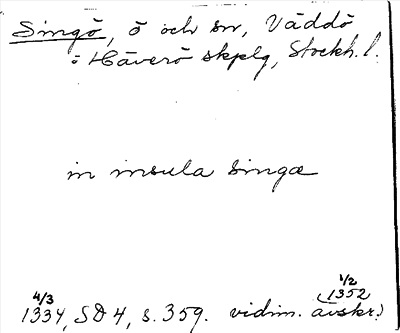 Singö, ö och sn, Väddö
o Häverö skplg, Stockh. l.
in insula singæ
4/3 1/2
1334, SD 4, s. 359. vidim. (1352 avskr.)